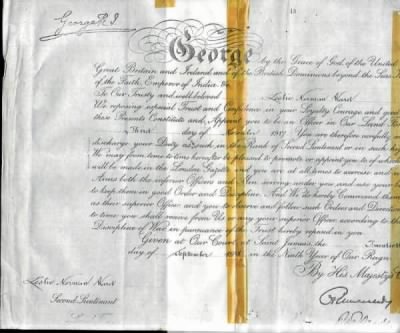 George R. I.
George by the Grace of God, of the United
Great Britain and Ireland and of the British Dominions beyond the Seas
of the Faith, Emperor of India. &c.
To Our Trusty and well beloved Leslie Norman
We reposing especial Trust and Confidence in your Loyalty Courage and good
these Presents Constitute and Appoint you to be an Officer in Our Land
day of 1917. You are therefore carefully
discharge your Duty as such in the Rank of Second Lieutenant or in such
We may from time to time hereafter be pleased to promote or appoint you to of which
will be made in the London Gazette and you are at all times to exercise and
Arms both the inferior Officers and Men serving under you and use your
to keep them in good Order and Discipline. And We do hereby Command them
as their superior Officer and you to observe and follow such Orders and
time to time you shall receive from Us or any your superior Officer according to the
Discipline of War in pursuance of the Trust hereby reposed in you
Given at Our Court, at Saint James's the
day of September in the Ninth Year of Our Reign
By His Majesty's
Leslie Norman
Second Lieutenant